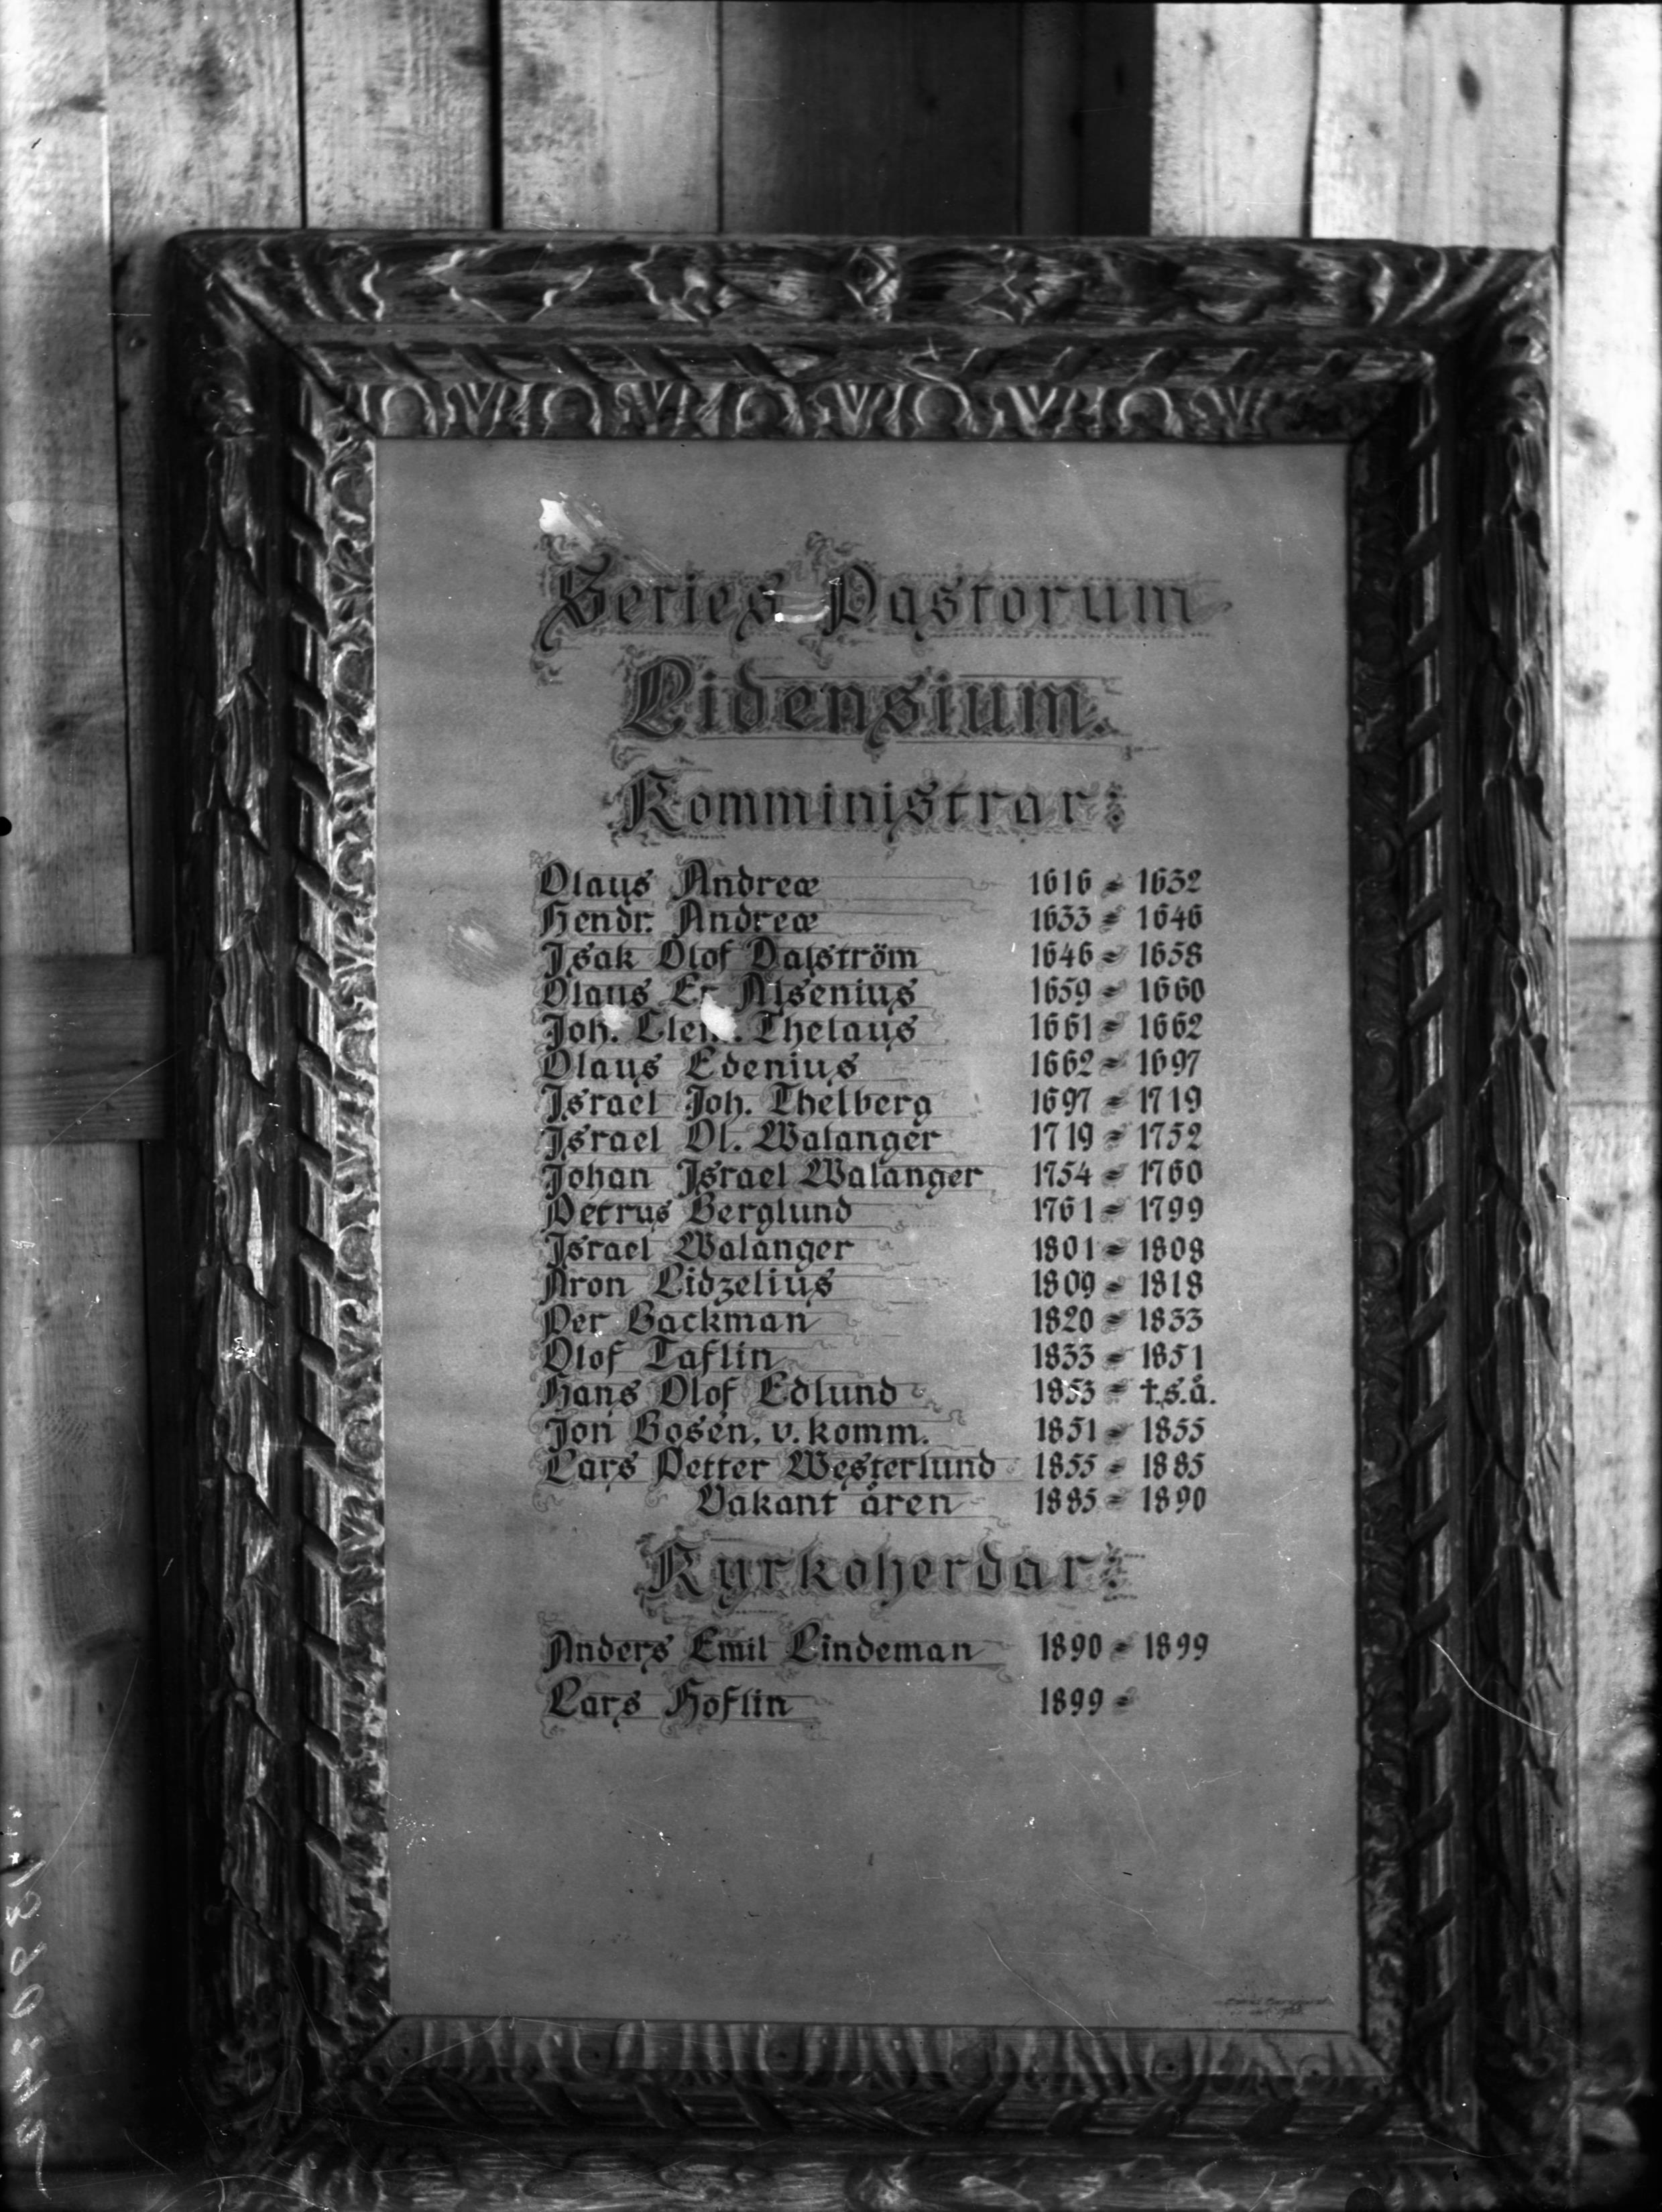 Series Pastorum
Lidensium.
Komministrar:
Olaus Andreæ 1616 - 1632
Hendr. Andreæ 1633 - 1646
Isak Olof Dalström 1646 - 1658
Olaus Er Alsenius 1659 - 1660
Joh. Clem. Thelaus 1661 - 1662
Olaus Edenius 1662 - 1697
Israel Joh. Thelberg 1697 - 1719
Israel Ol. Walanger 1719 - 1752
Johan Israel Walanger 1754 - 1760
Petrus Berglund 1761 - 1799
Israel Walanger 1801 - 1808
Aron Lidzelius 1809 - 1818
Per Backman 1820 - 1833
Olof Taflin 1833 - 1851
Hans Olof Edlund 1853 - †.s.å.
Jon Bosén, v. komm. 1851 - 1855
Lars Petter Westerlund 1855 - 1885
Vakant åren 1885 - 1890
Kyrkoherdar:
Anders Emil Lindeman 1890 - 1899
Lars Hoflin 1899 -